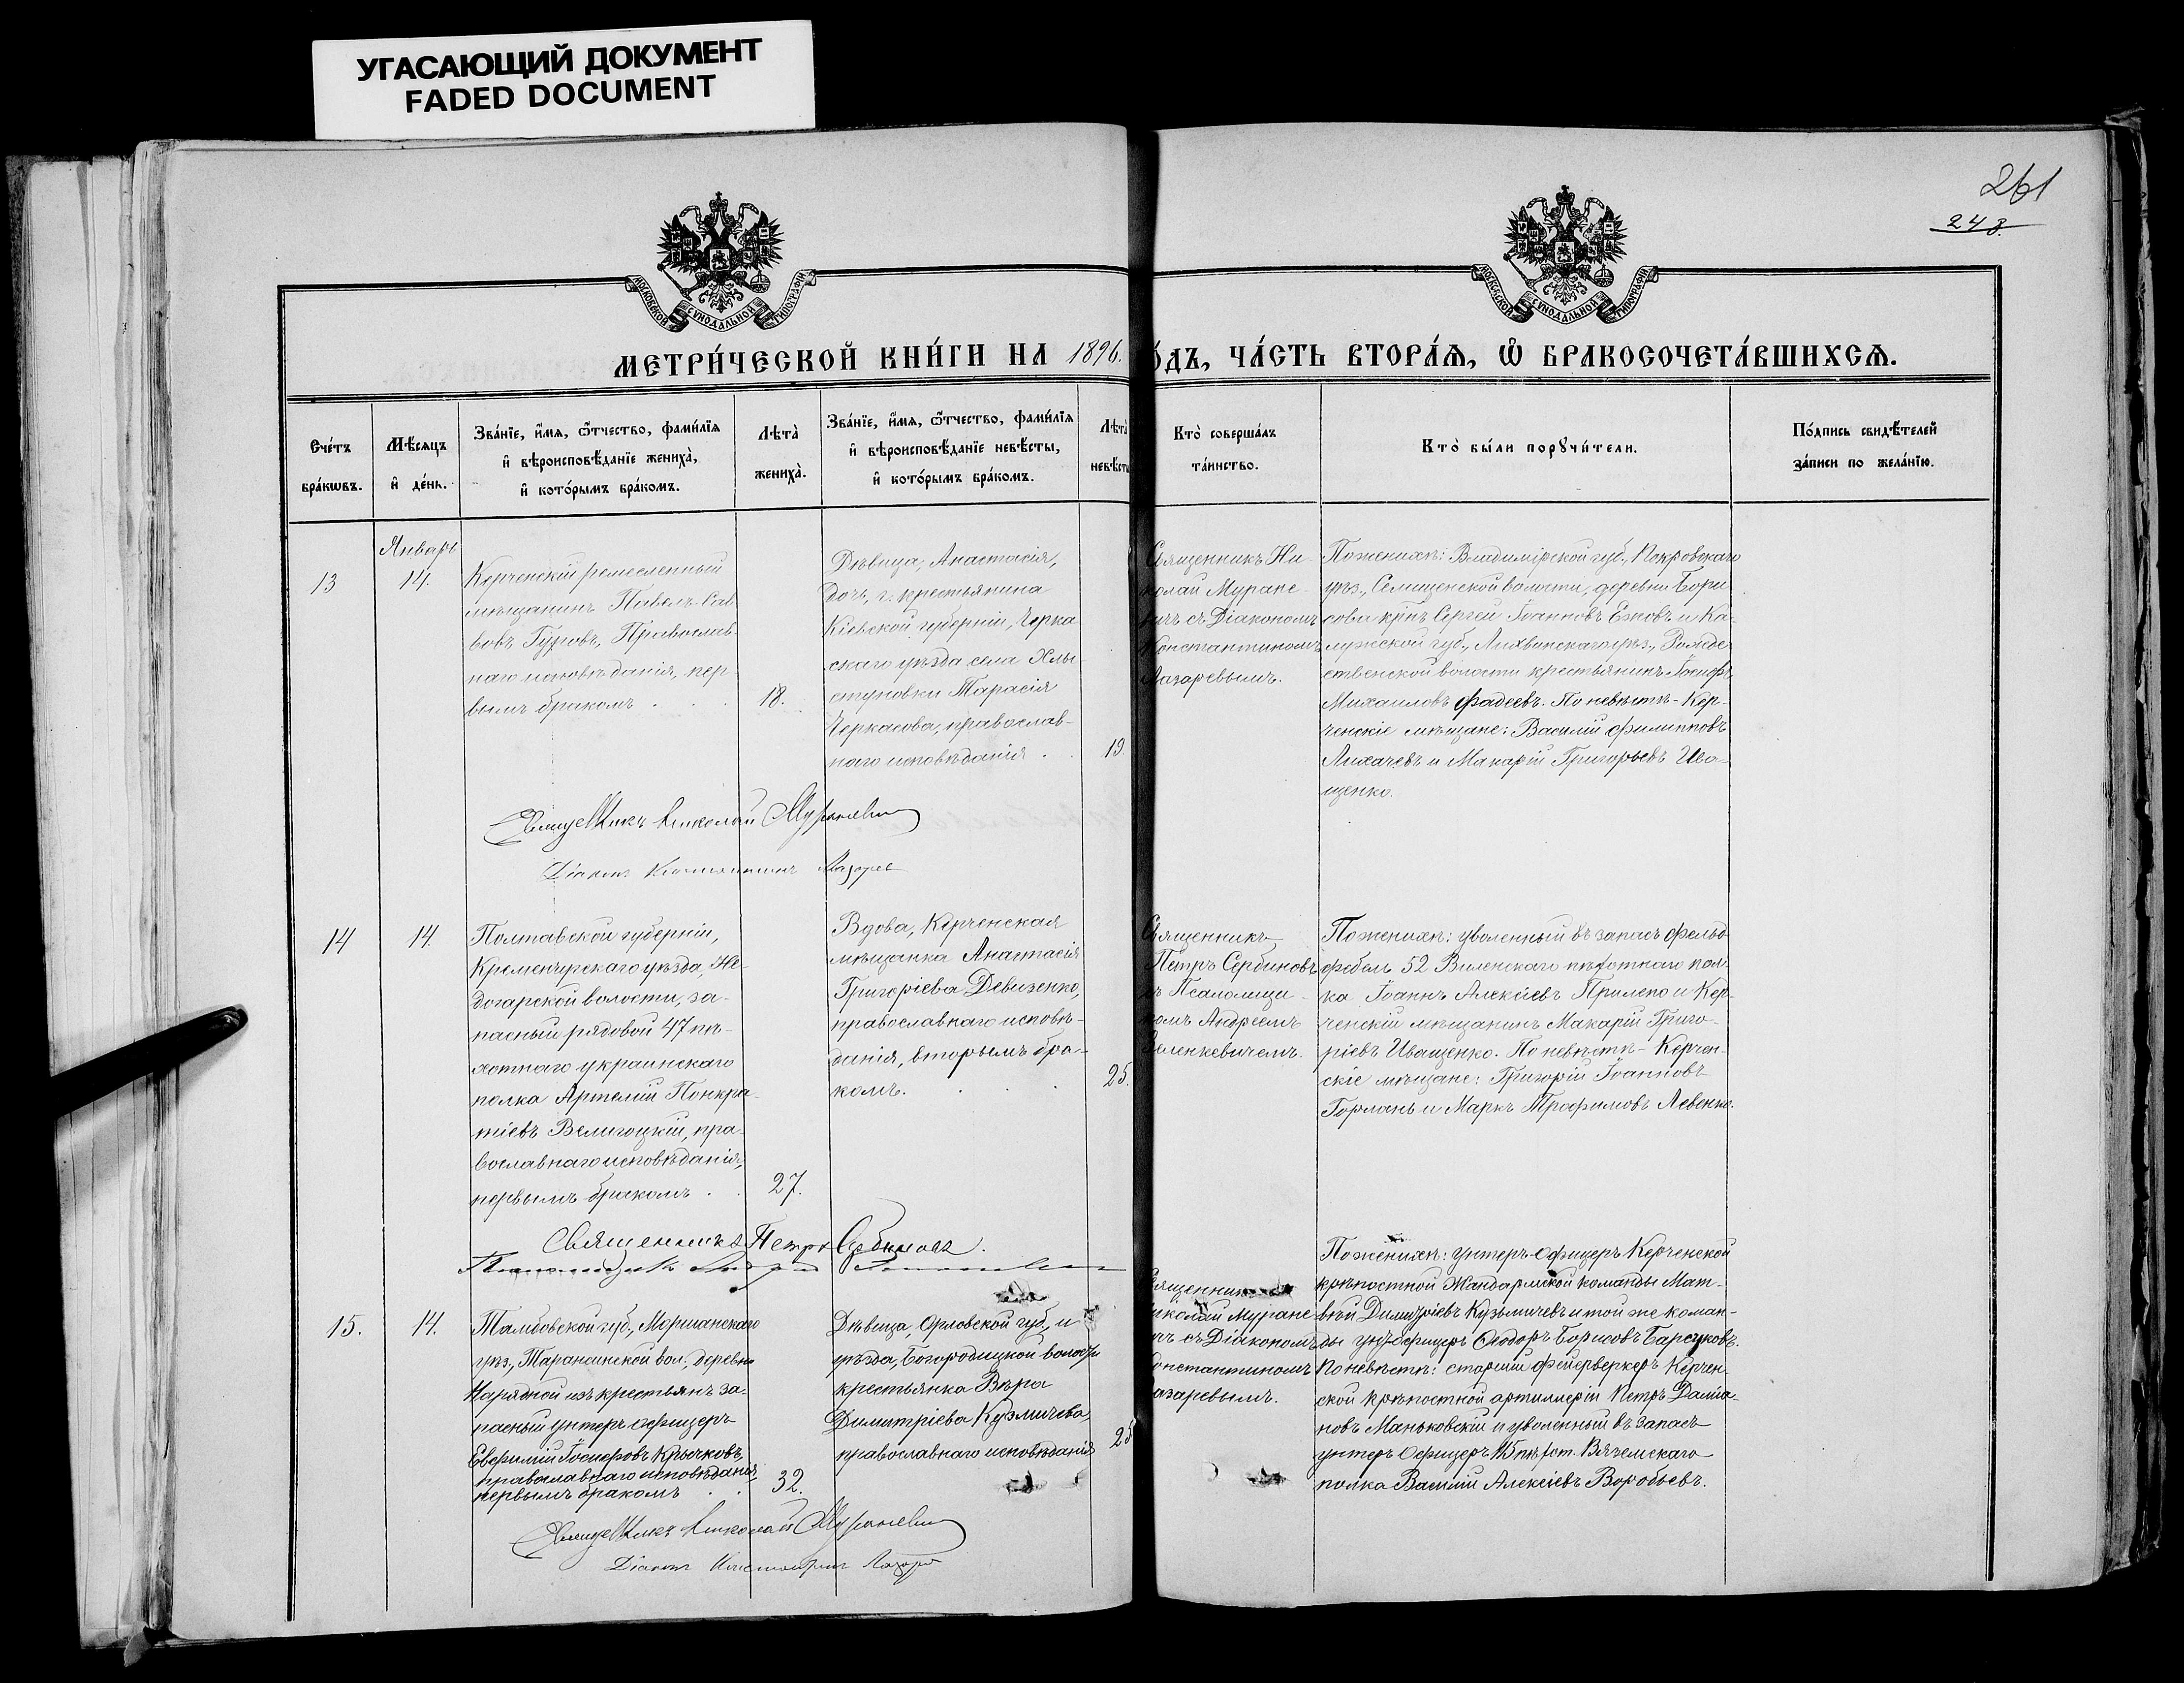 УГАСАЮЩИЙ ДОКУМЕНТ
FADED DOCUMENT
261
243.
МОСКОВСКОЙ СѴНОДАЛЬНОЙ ТИПОГРАФІИ
МОСКОВСКОЙ СѴНОДАЛЬНОЙ ТИПОГРАФІИ
МЕТРИ́ЧЕСКОЙ КНИ́ГИ НА 1896.
О́ДЪ, ЧА́СТЬ ВТОРА́Я, Ѡ БРАКОСОЧЕТА́ВШИХСЯ.
Сче́тъ
бра́кѡвъ.
Мѣ́сяцъ
и҆ де́нь.
Зва́нїе, и҆́мя, ѻ҆́тчество, фами́лїя
и҆ вѣроисповѣ́данїе жениха̀,
и҆ кото́рымъ бра́комъ.
Лѣта̀
жениха̀.
Зва́нїе, и҆́мя, ѻ҆́тчество, фами́лїя
и҆ вѣроисповѣ́данїе невѣ́сты,
и҆ кото́рымъ бра́комъ.
Лѣта̀
невѣ́сты
Кто̀ соверша́лъ
та́инство.
Кто̀ бы́ли порꙋчи́тели.
По́дпись свидѣ́телей
за́писи по жела́нїю.
Январь
13
14.
Керченскій ремесленный
мѣщанинъ Павелъ Сав
вовъ Гуровъ, Православ
наго исповѣданія, пер
вымъ бракомъ . . .
18.
Дѣвица, Анастасія,
дочь, г. крестьянина
Кіевской губерніи, Черка
скаго уѣзда села Хлы
стуновки Тарасія
Черкасова, православ-
наго исповѣданія . .
19.
Священникъ Ни-
колай Муране-
вичъ съ Діакономъ
Константиномъ
Лазаревымъ.
По женихѣ: Владимірской губ., Покровскаго
уѣз., Селищенской волости, деревни Бори
сова кр҃нъ Сергей Іоанновъ Ежовъ и Ка-
лужской губ., Лихвинскаго уѣз., Рожде
ственской волости крестьянинъ Іосифъ
Михаиловъ Фадеевъ. По невѣстѣ - Кер-
ченскіе мѣщане: Василій Филипповъ
Лихачевъ и Макарій Григорьевъ Ива-
щенко.
Священникъ Николай Мураневич
Діаконъ Константинъ Лазарев
14
14.
Полтавской губерніи,
Кременчугскаго уѣзда, Не-
догарской волости, за-
пасный рядовой 47 пѣ-
хотнаго украинскаго
полка Артемій Понкра-
тіевъ Велигоцкій, пра-
вославнаго исповѣданія,
первымъ бракомъ . .
27.
Вдова, Керченская
мѣщанка Анастасія
Григоріева Девизенко,
православнаго исповѣ-
данія, вторымъ бра-
комъ. . .
25.
Священникъ
Петръ Сербиновъ
съ Псаломщи-
комъ Андреемъ
Зеленкевичемъ.
По женихѣ: уволенный въ запасъ фельд-
фебель 52 Виленскаго пѣхотнаго пол-
ка Іоаннъ Алексіевъ Прилепо и Кер-
ченскій мѣщанинъ Макарій Григо-
ріевъ Иващенко. По невѣстѣ - Керчен-
скіе мѣщане: Григорій Іоанновъ
Горлань и Маркъ Трофимовъ Левенко.
Священникъ Петръ Сербиновъ.
15.
14.
Тамбовской губ., Моршанскаго
уѣз., Таранинской вол., деревни
Нарядной изъ крестьянъ за-
пасный унтеръ офицеръ
Евфимій Іосифовъ Крючковъ,
православнаго исповѣданія,
первымъ бракомъ . .
32.
Дѣвица, Орловской губ., и
уѣзда, Богородицкой волости
крестьянка Вѣра
Димитріева Кузмичева,
православнаго исповѣданія
25
Священникъ
Николай Муране
вичъ съ Діакономъ
Константиномъ
Лазаревымъ.
По женихѣ: унтеръ-офицеръ Керченской
крѣпостной Жандармской команды Мат-
вѣй Димитріевъ Кузьмичевъ и той же коман-
ды унт-офицеръ Ѳеодоръ Борисовъ Барсуковъ.
По невѣстѣ: старшій фейерверкеръ Керчен-
ской крѣпостной артиллеріи Петръ Даміа-
новъ Маньковскій и уволенный въ запасъ
унтеръ офицеръ 115 пѣхот. Вяземскаго
полка Василій Алексіевъ Воробьевъ.
Священникъ Николай Мураневич
Діаконъ Константинъ Лазарев